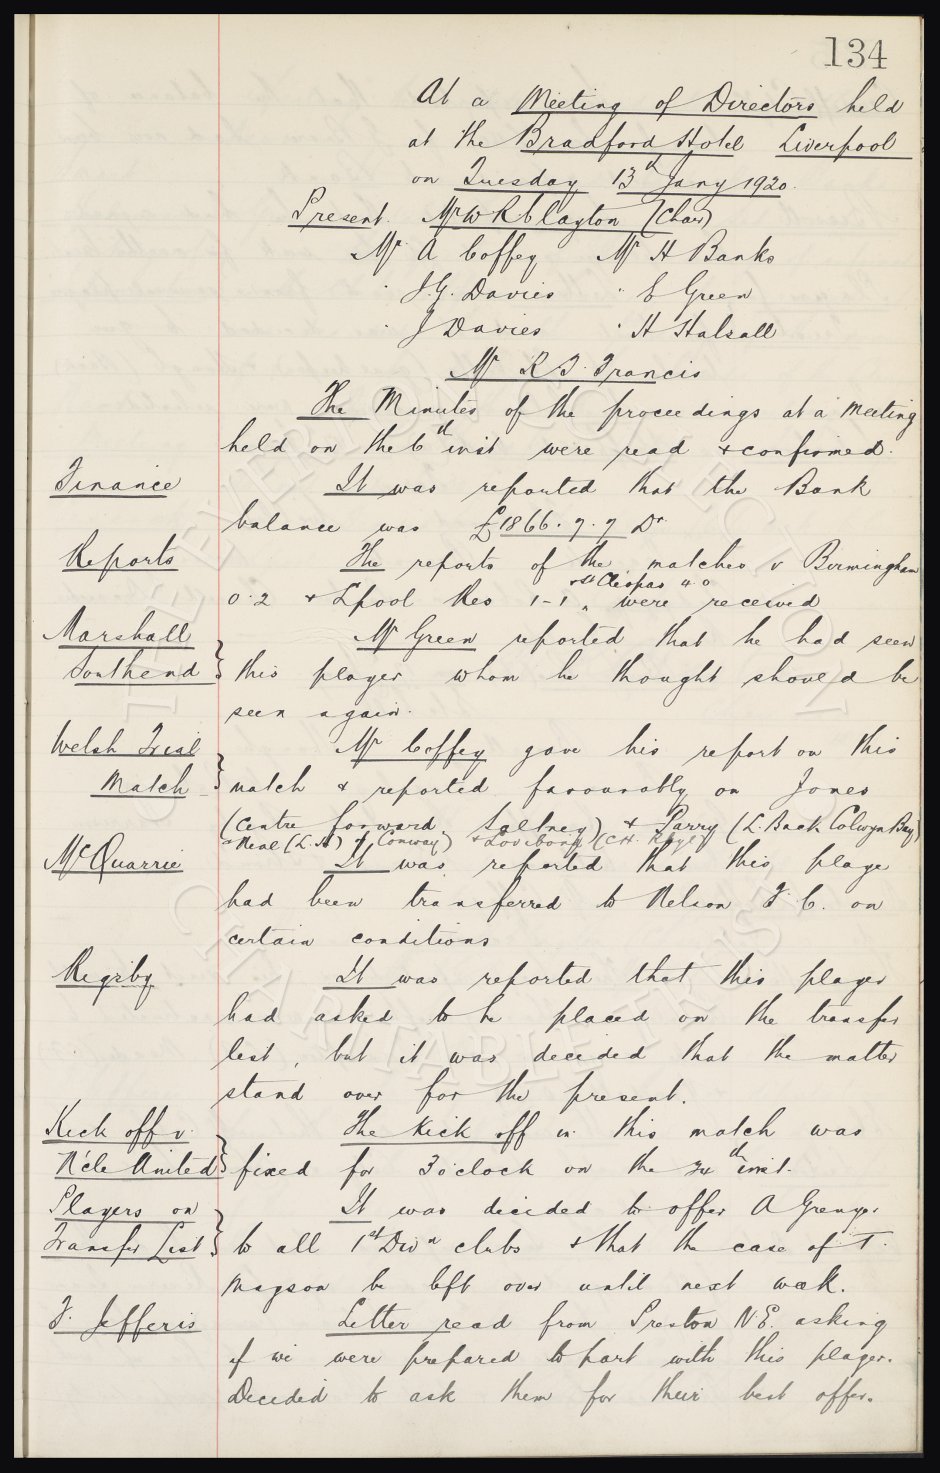 134
At a Meeting of Directors held
at the Bradford Hotel Liverpool
on Tuesday 13th Jany 1920.
Present. Mr W R Clayton (Chair)
Mr A Coffey Mr H Banks
" J.G. Davies " E Green
" J Davies " H Halsall
Mr R T Francis
The Minutes of the proceedings at a meeting
held on the 6th inst were read & confirmed.
Finance It was reported that the Bank
balance was £1866. 7. 7 Dr
Reports The reports of the matches v Birmingham
& St Cleopas
0.2 & Lpool Res 1-1 were received
Marshall Mr Green reported that he had seen
Southend } this player whom he thought should be
seen again.
Welsh Trial Mr Coffey gave his report on this
Match } match & reported favourably on Jones
(Centre forward Saltney) & Parry (L. Back Colwyn Bay)
& Neal (L. ) of Conway) & (CH. Rhyl)
McQuarrie It was reported that this playe
had been transferred to Nelson F.C. on
certain conditions
Rigsby It was reported that this player
had asked to be placed on the transfer
list, but it was decided that the matter
stand over for the present.
Kick off v. The Kick off in this match was
N'cle United } fixed for 3 o'clock on the 24th inst.
Players on It was decided to offer A Grenyer
Transfer List } to all 1st Divn clubs & that the case of T
Magson be left over until next week.
F. Jefferis Letter read from Preston N E. asking
if we were prepared to part with this player.
Decided to ask them for their best offer.